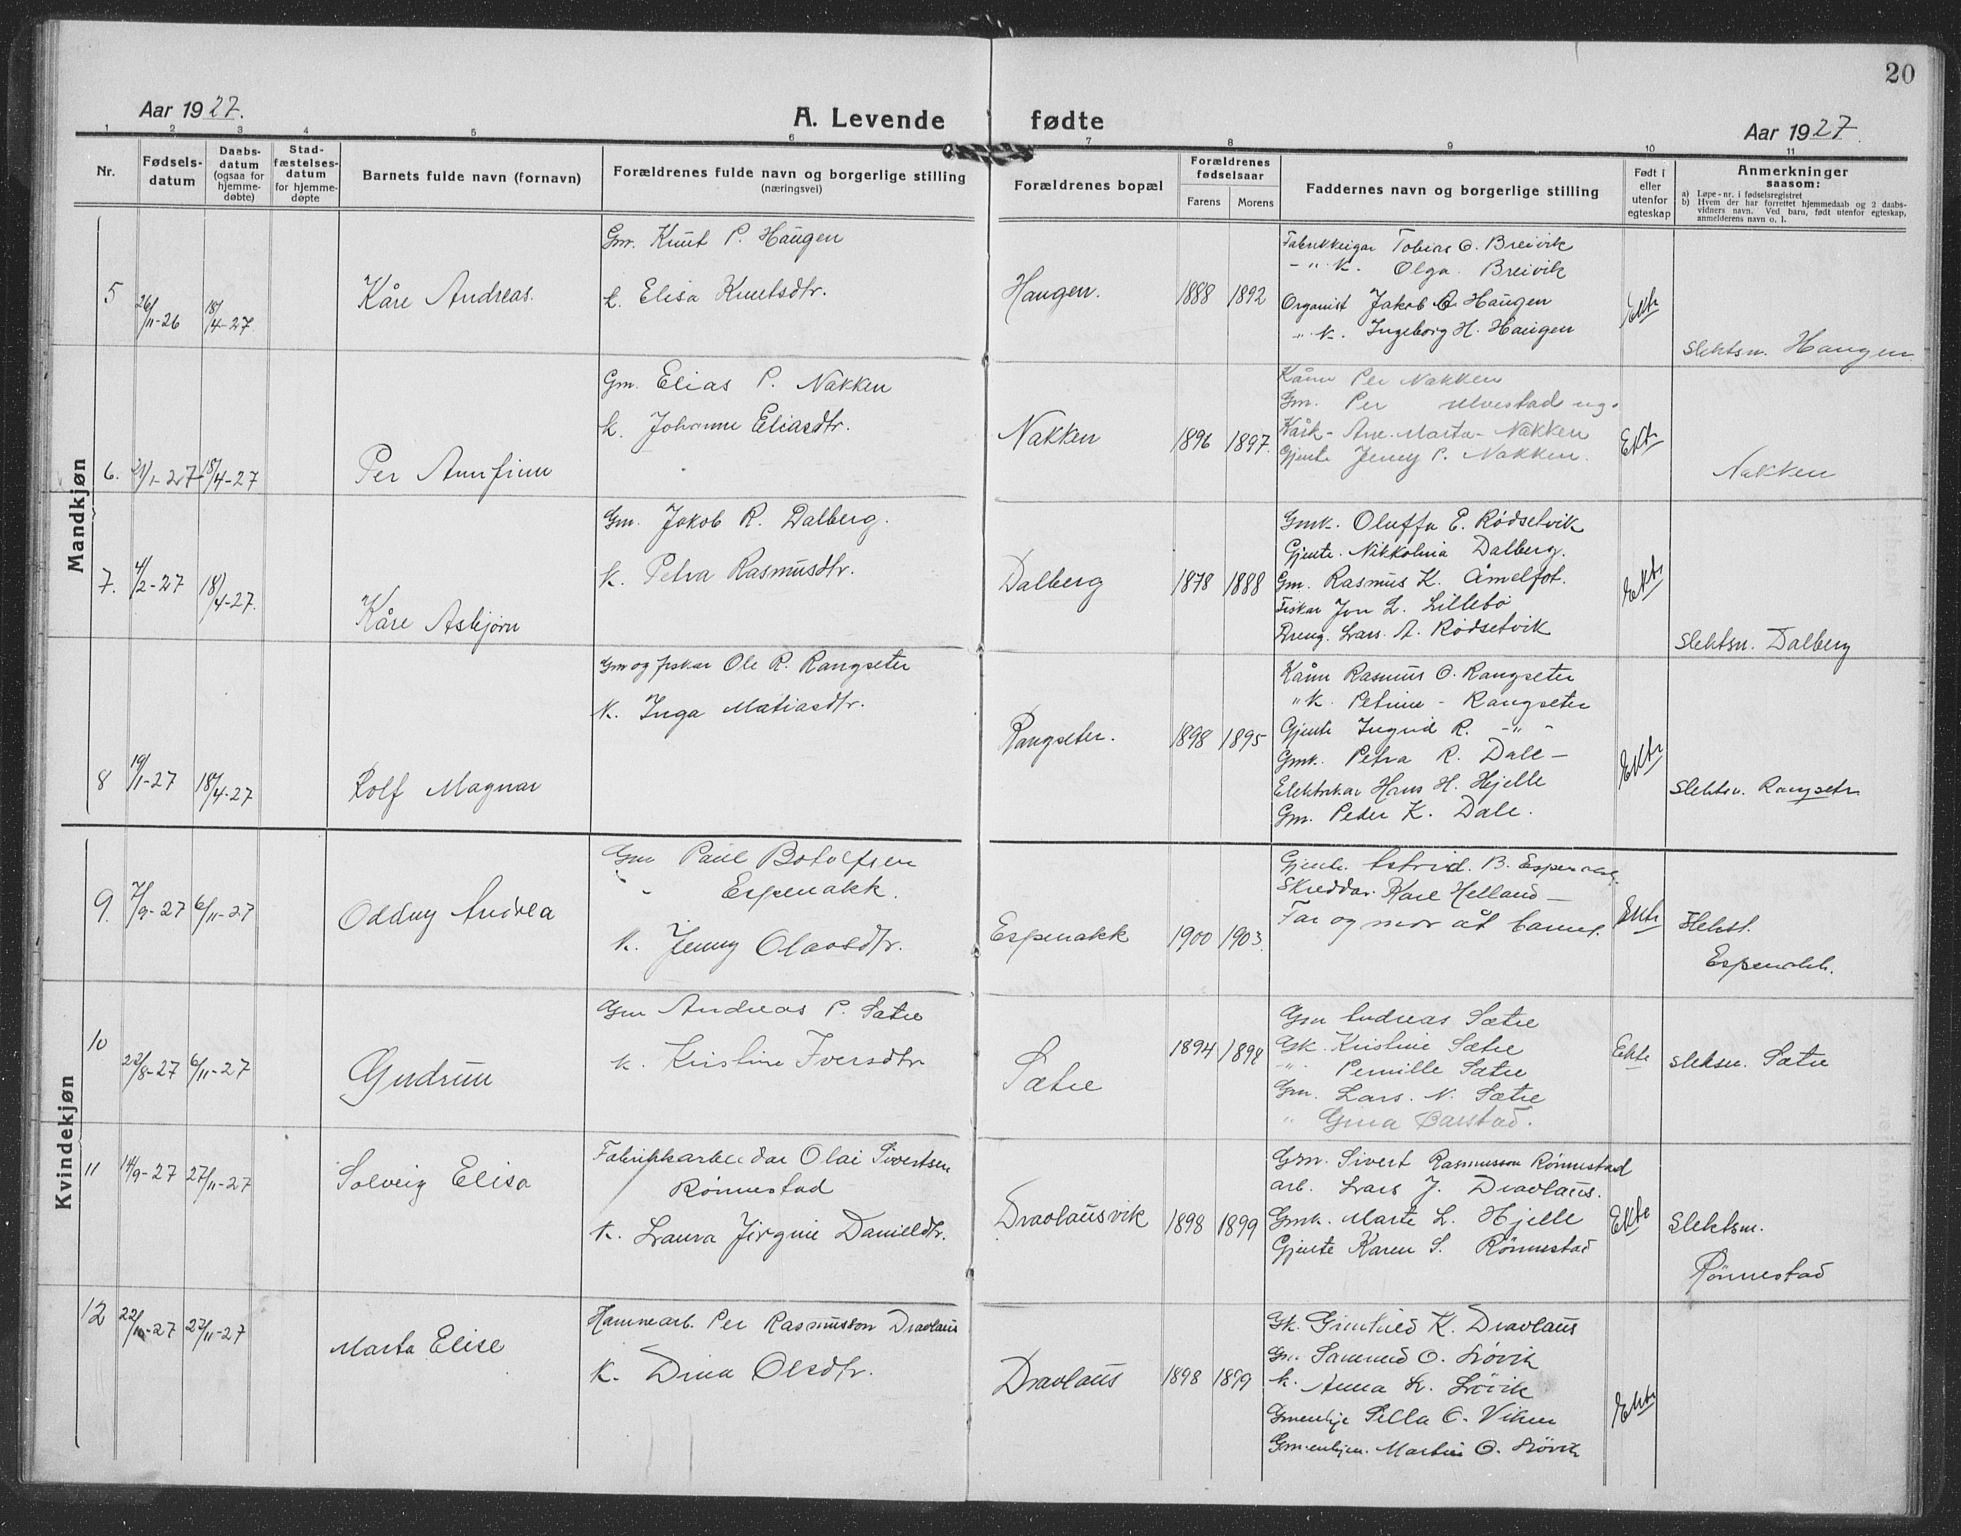 20
Aar 1927.
A. Levende fødte
Aar 1927.
1 2 3 4 5 6 7 8 9 10 11
Nr.
Fødsels-
datum
Daabs-
datum
(ogsaa for
hjemme-
døbte)
Stad-
fæstelses-
datum
for hjemme-
døpte
Barnets fulde navn (fornavn)
Forældrenes fulde navn og borgerlige stilling
(næringsvei)
Forældrenes bopæl
Forældrenes
fødselsaar
Farens
Morens
Faddernes navn og borgerlige stilling
Født i
eller
utenfor
egteskap
Anmerkninger
saasom:
a) Løpe-nr. i fødselsregistret
b) Hvem der har forrettet hjemmedaab og 2 daabs-
vidners navn. Ved barn, født utenfor egteskap,
anmelderens navn o. l.
Mandkjøn
5
26/11-26
18/4-27.
Kåre Andreas.
Gm. Knut P. Haugen
k. Elisa Knutsdtr.
Haugen.
1888
1892
Fabrikkeigar Tobias O. Breivik
- " k. Olga Breivik
Organist Jakob Haugen
" k. Ingeborg H. Haugen
Ekte
Slektsn. Haugen
6.
21/1-27
18/4-27
Per Arnfinn
Gm. Elias P. Nakken
k. Johanne Eliasdtr.
Nakken
1896
1897.
Kårm Per Nakken
Gm. Per Ulvestad ug.
Kårk- Ane Marta- Nakken
Gjente Jenny P. Nakken.
Ekte
Nakken
7.
4/2-27
18/4-27.
Kåre Asbjørn
Gm. Jakob R. Dalberg.
k. Petra Rasmusdtr.
Dalberg
1878
1888
Gmk. Oluffa E. Rødsetvik
Gjente. Nikkolina Dalberg.
Gm. Rasmus K. Åmelfot.
Fiskar Jon L. Lillebø
Dreng. Lars. A. Rødsetvik
Ekte
Slektsn. Dalberg
8
19/1-27
18/4-27
Rolf Magnar
Gm og fiskar Ole R. Rangseter
k. Inga Matiasdtr.
Rangseter.
1898
1895
Kårm Rasmus O. Rangseter
" k. Petrine - Rangseter
Gjente Ingrid R. - " -
Gmk. Petra R. Dale -
Elektrikar Hans H. Hjelle
Gm. Peter K. Dale.
Ekte
Slektsn. Rangseter
Kvindekjøn
9.
7/9-27
6/11-27
Oddny Andrea
Gm Paul Botolfsen
Espenakk.
k. Jenny Olavsdtr.
Espenakk
1900
1903.
Gjente. Astrid. B. Espenakk.
Skreddar. Kåre Helland -
Far og mor åt barnet.
Ekte
Slekt.
Espenakk.
10
22/8-27
6/11-27
Gudrun
Gm Andreas P. Sætre
k. Kristine Iversdtr
Sætre
1894
1898
Gm Andreas Sætre
Gk. Kristine Sætre
" Pernille Sætre
Gm. Lars. N. Sætre
" Gina Barstad.
Ekte
Slektsn. Sætre
11
14/9-27
27/11-27
Solveig Elisa
Fabrikkarbeidar Olai Sivertsen
Rønnestad
k. Laura Jørgine Danieldtr.
Dravlausvik
1898
1899
Gm. Sivert Rasmusson Rønnestad
arb. Lars J. Dravlaus.
Gmk. Marte L. Hjelle
Gjente Karen S. Rønnestad
Ekte
Slektsn.
Rønnestad
12
22/10-27
27/11-27
Marta Elise
Hamnearb. Per Rasmusson Dravlaus
k. Dina Olsdtr.
Dravlaus
1898
1899
Gk. Gunhild K. Dravlaus
Gm. Sammund O. Løvik
k. Anna L. Løvik
Gmenkje Pella O. Viken
Martin O. Løvik
Ekte